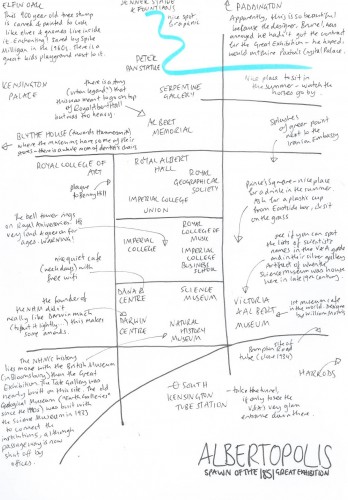 ELFIN OAK
This 900 year old tree stump
is carved & painted to look
like elves & gnomes live inside
it. Enchanting! Saved by Spike
Milligan in the 1960s. There is a
great kids playground next to it.
JENNER STATUE
& FOUNTAINS
nice spot
for a picnic
PETER
PAN STATUE
PADDINGTON
Apparently, this is so beautiful
because the designer, Brunel, was
annoyed he hadn't got the contract
for the Great Exhibition - he hoped
would outshine Paxton's Crystal Palace.
KENSINGTON
PALACE
there is a story
(urban legend?) that
this was meant to be on top
of Royal Albert Hall
but was too heavy.
SERPENTINE
GALLERY
Nice place to sit in
the summer - watch the
horses go by...
ALBERT
MEMORIAL
BLYTHE HOUSE (towards Hammersmith)
where the museums have some of their
stores - there is a whole room of dentist's chairs
splashes
of green paint
next to the
Iranian Embassy
ROYAL COLLEGE OF
ART
ROYAL ALBERT
HALL
ROYAL
GEOGRAPHICAL
SOCIETY
plaque
to Benny Hill
IMPERIAL COLLEGE
UNION
Prince's Square - nice place
for a drink in the summer.
Ask for a plastic cup
from Eastside bar, & sit
on the grass
The bell tower rings
on Royal Anniversaries. It's
very loud & goes on for
ages. WARNING!
IMPERIAL
COLLEGE
ROYAL
COLLEGE
OF MUSIC
IMPERIAL
COLLEGE
BUSINESS
SCHOOL
see if you can spot
the lots of scientists
names in the V&A
and in their silver gallery
Artifact of when the
Science Museum was housed
here in late 19th century.
nice quiet cafe
(weekdays) with
free wifi
DANA
CENTRE
SCIENCE
MUSEUM
the founder of
the NHM didn't
really like Darwin much
(to put it lightly...) this makes
some amends.
DARWIN
CENTRE
NATURAL
HISTORY
MUSEUM
VICTORIA
& ALBERT
MUSEUM
1st museum cafe
in the world. Designed
by William Morris
The NHM's history
lies more with the British Museum
(in Bloomsbury) than the Great
Exhibition. The Tate Gallery was
nearly built on this site. The old
Geological Museum ("Earth Galleries"
since the 1980s) was built with
the Science Museum in 1933
to connect the
institutions, although
passageway is now
shut off by
offices.
site of
Brompton Road
tube
HARRODS
SOUTH
KENSINGTON
TUBE STATION
- take the tunnel,
if only to see the
V&A's very glam
entrance down there.
ALBERTOPOLIS
SPAWN OF THE 1851 GREAT EXHIBITION